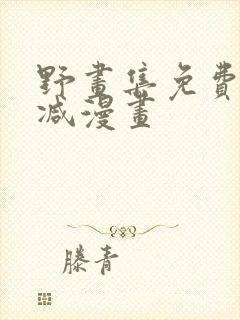 野畫集免費
減漫畫
滕青